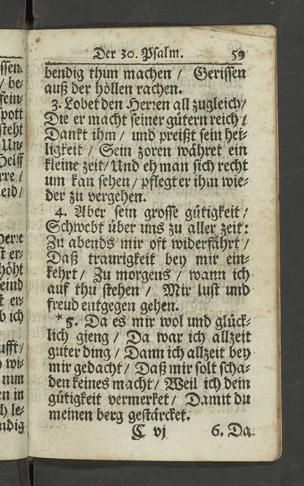 Der 30. Psalm. 59
bendig thun machen / Gerissen
auß der höllen rachen.
3. Lobet den Herren all zugleich/
Die er macht seiner gütern reich /
Danckt ihm / und preißt sein hei-
ligkeit / Sein zoren währet ein
kleine zeit/ Und eh man sich recht
um kan sehen / pfleget er ihm wie-
der zu vergehen.
4. Aber sein grosse gütigkeit /
Schwebt über uns zu aller zeit:
Zu abends mir oft widerfährt /
Daß traurigkeit bey mir ein-
kehrt / Zu morgens / wann ich
auf thu stehen / Mir lust und
freud entgegen gehen.
*5. Da es mir wol und glück-
lich gieng / Da war ich allzeit
guter ding / Dann ich allzeit bey
mir gedacht / Daß mir solt scha-
den keines macht / Weil ich dein
gütigkeit vermerket / Damit du
meinen berg gestärcket.
C vj 6. Da